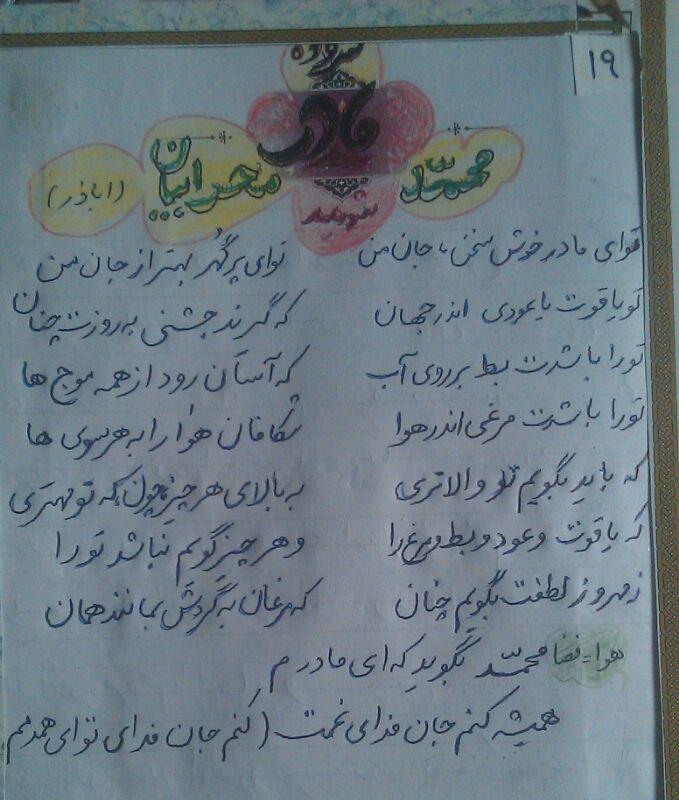 ۱۹
سروده
مادر
محمد محرابیان (اباذر)
شهید
تو ای مادر خوش سخن با جان من تو ای پر گهر بهتر از جان من
تو یاقوت یا عودی اندر جهان که گیرند جشنی به روزت چنان
تو را باشدت بط بر روی آب که آسان رود از همه موج ها
تو را باشدت مرغی اندر هوا شکافان هوا را به هر سوی ها
که باید بگویم تو والاتری به بالای هر چیز چون که تو بهتری
که یاقوت و عود و بط و مرغ را و هر چیز گویم نباشد تو را
ز مهر و ز لطفت بگویم چنان که مرغان به گردش بمانند همان
هوا = فضا محمد بگوید که ای مادرم
همیشه کنم جان فدای غمت (کنم جان فدای تو ای همدمم